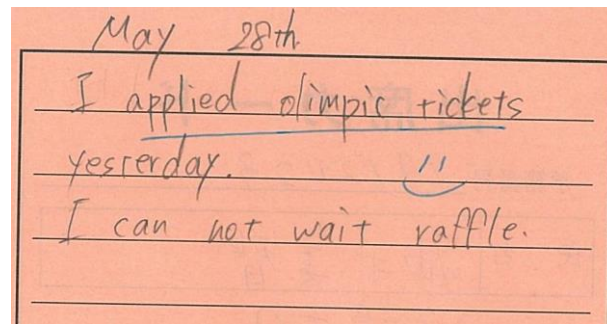 May 28th.
I applied olimpic tickets
yesterday.
I can not wait raffle.